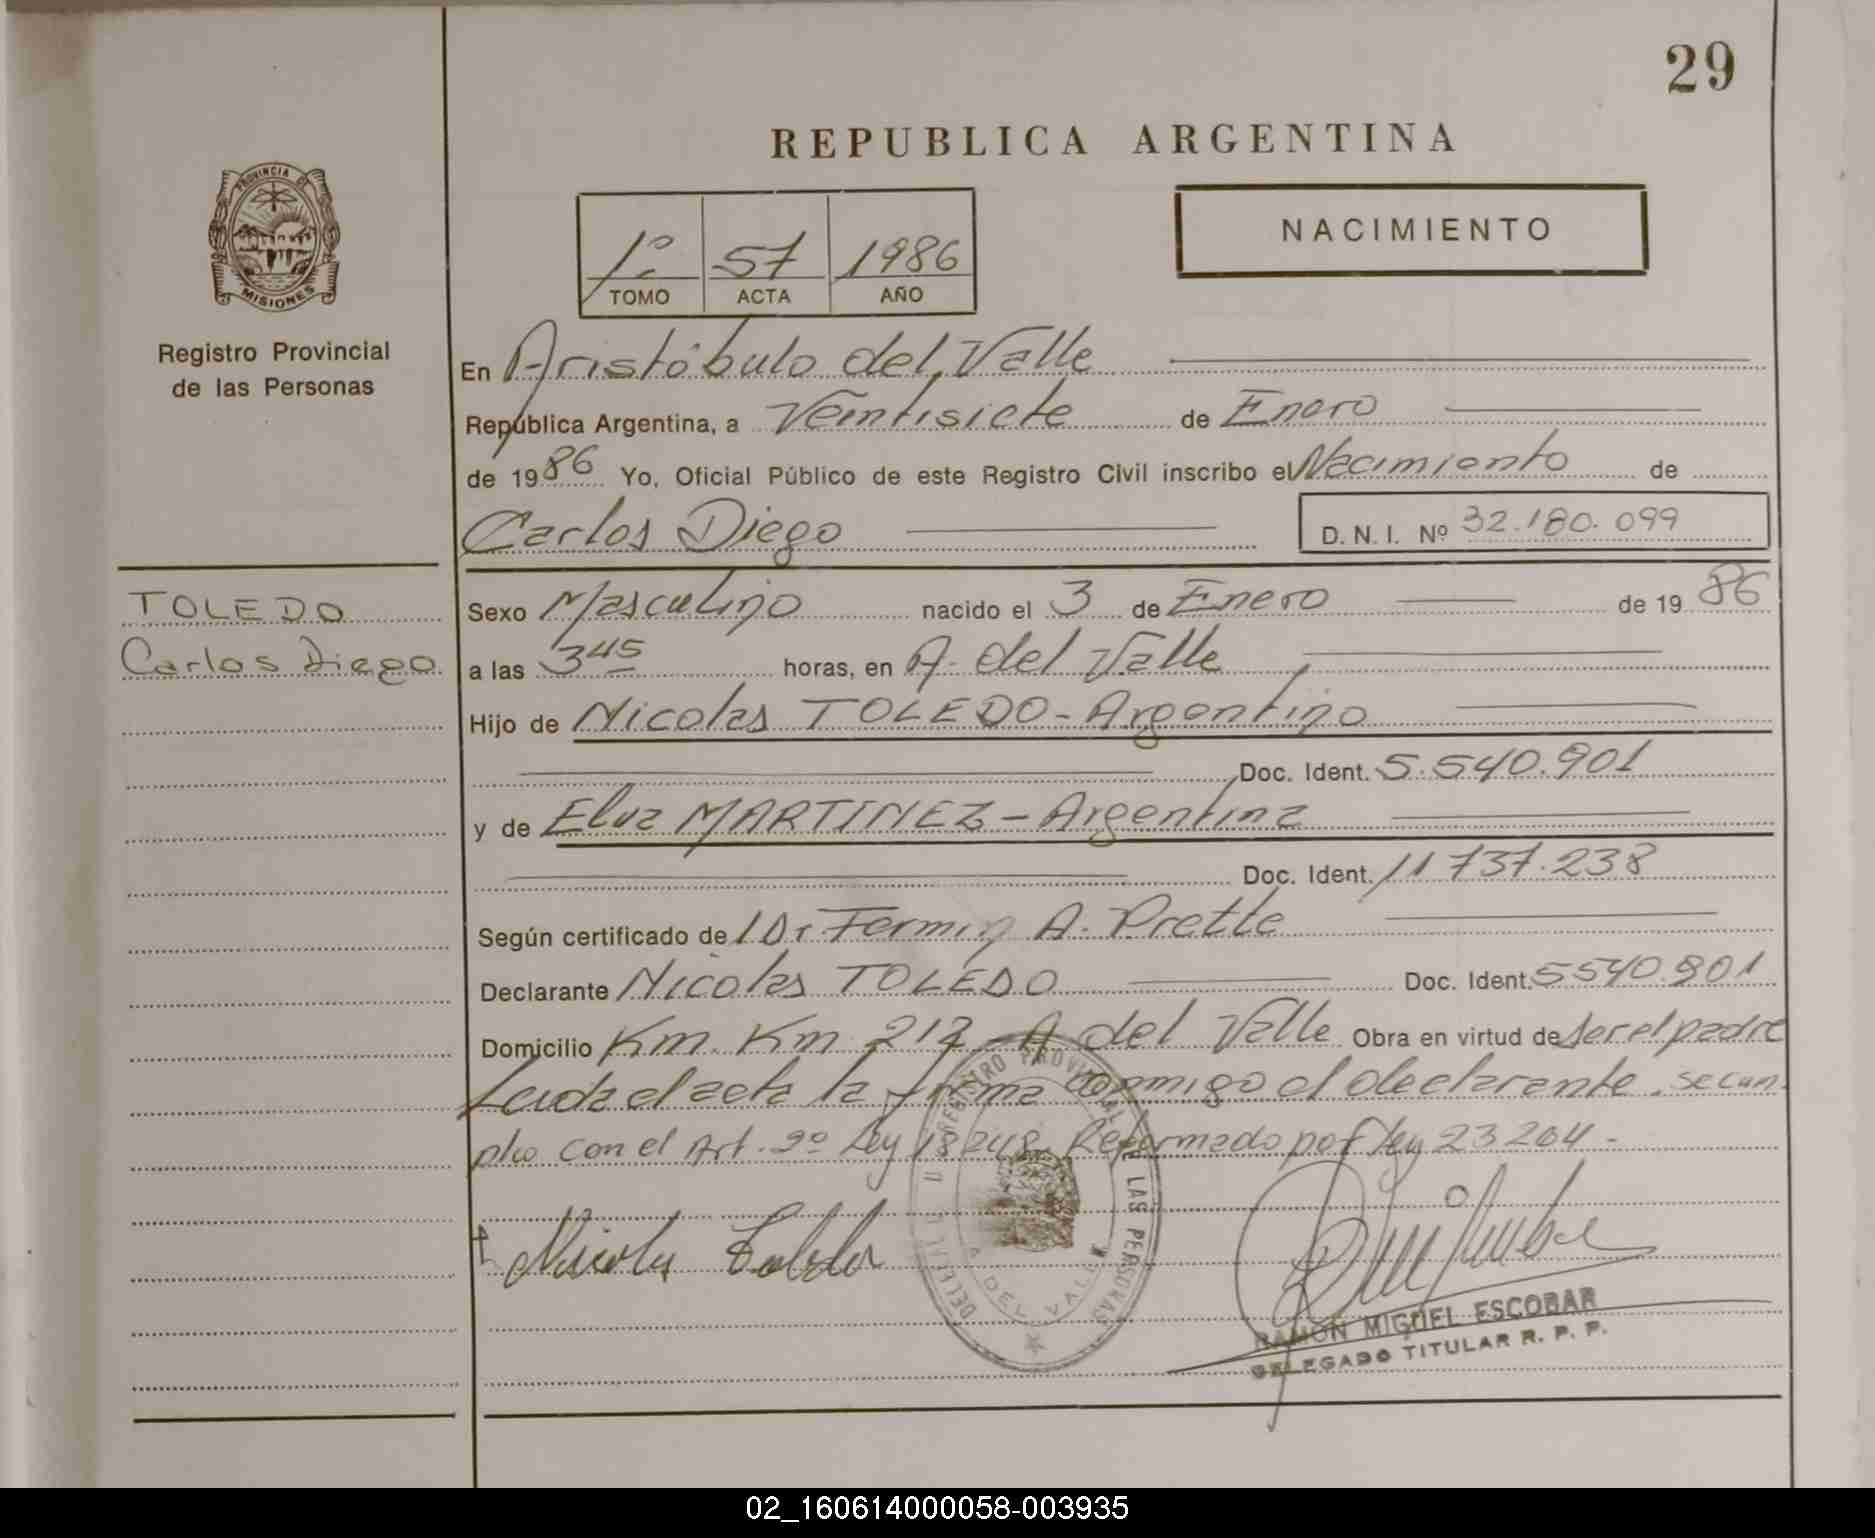 29
REPUBLICA ARGENTINA
PROVINCIA DE
MISIONES
Registro Provincial
de las Personas
1º 57 1986
TOMO ACTA AÑO
NACIMIENTO
En Aristóbulo del Valle
República Argentina, a Veintisiete de Enero
de 1986 Yo, Oficial Público de este Registro Civil inscribo el Nacimiento de
Carlos Diego D. N. I. Nº 32.180.099
TOLEDO
Carlos Diego
Sexo Masculino nacido el 3 de Enero de 1986
a las 3 45 horas, en A. del Valle
Hijo de Nicolas TOLEDO - Argentino
Doc. Ident. 5.540.901
y de Elva MARTINEZ - Argentina
Doc. Ident. 11.737.238
Según certificado de Dr Fermin A.
Declarante Nicolas TOLEDO Doc. Ident. 5540.901
Domicilio Km. Km 212 A del Valle Obra en virtud de ser el padre
Leida el acta la firma conmigo el declarante. se cum
plio con el Art. 2º Ley 18248 Reformado por ley 23264 -
Nicolas Toledo
REGISTRO PROVINCIAL DE LAS PERSONAS
A. DEL VALLE
RAMON MIGUEL ESCOBAR
DELEGADO TITULAR R. P. P.
02_160614000058-003935